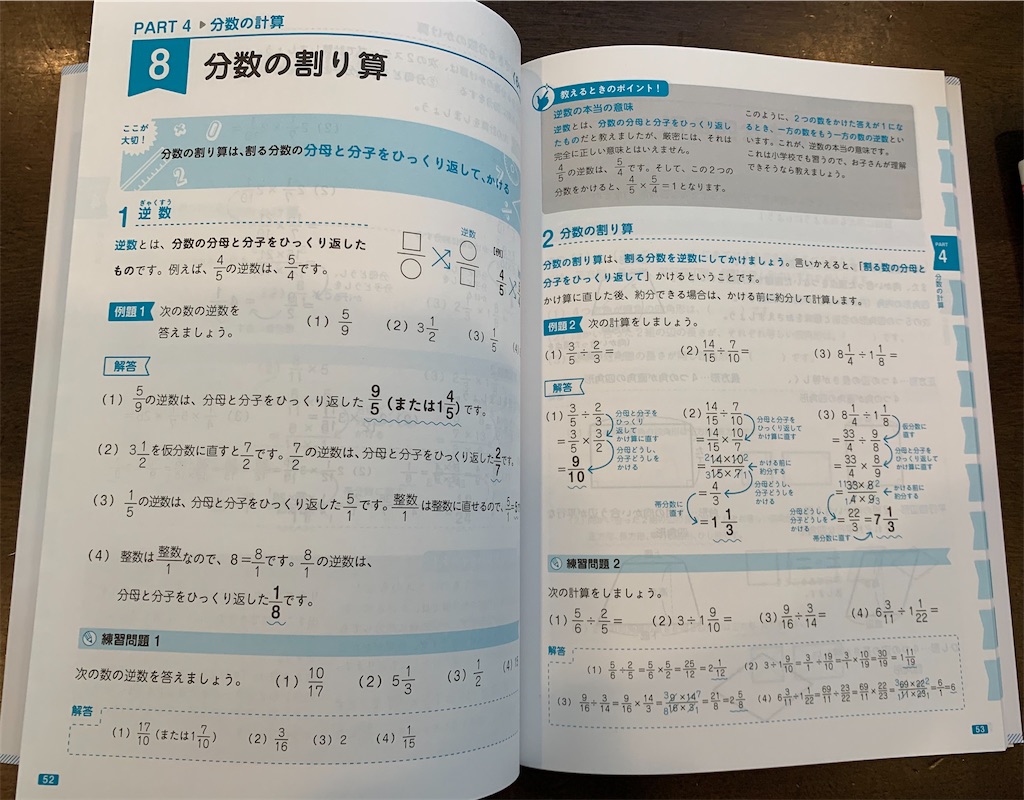 PART 4 ▶ 分数の計算
8 分数の割り算
ここが
大切！
分数の割り算は、割る分数の分母と分子をひっくり返して、かける
ぎゃくすう
1 逆数
逆数とは、分数の分母と分子をひっくり返した
ものです。例えば、4/5の逆数は、5/4です。
逆数
□/○ ○/□
【例】
4/5
例題1 次の数の逆数を
答えましょう。
(1) 5/9 (2) 3 1/2 (3) 1/5 (4)
解答
(1) 5/9の逆数は、分母と分子をひっくり返した 9/5(または1 4/5)です。
(2) 3 1/2を仮分数に直すと7/2です。7/2の逆数は、分母と分子をひっくり返した2/7です。
(3) 1/5の逆数は、分母と分子をひっくり返した5/1です。整数/1は整数に直せるので、5/1=5
(4) 整数は整数/1なので、8=8/1です。8/1の逆数は、
分母と分子をひっくり返した1/8です。
練習問題 1
次の数の逆数を答えましょう。 (1) 10/17 (2) 5 1/3 (3) 1/2 (4) 15
解答
(1) 17/10(または1 7/10) (2) 3/16 (3) 2 (4) 1/15
52
教えるときのポイント！
逆数の本当の意味
逆数とは、分数の分母と分子をひっくり返し
たものだと教えましたが、厳密には、それは
完全に正しい意味とはいえません。
4/5の逆数は、5/4です。そして、この2つの
分数をかけると、4/5×5/4=1となります。
このように、2つの数をかけた答えが1にな
るとき、一方の数をもう一方の数の逆数とい
います。これが、逆数の本当の意味です。
これは小学校でも習うので、お子さんが理解
できそうなら教えましょう。
2 分数の割り算
分数の割り算は、割る分数を逆数にしてかけましょう。言いかえると、「割る数の分母と
分子をひっくり返して」かけるということです。
かけ算に直した後、約分できる場合は、かける前に約分して計算します。
例題2 次の計算をしましょう。
(1) 3/5÷2/3= (2) 14/15÷7/10= (3) 8 1/4÷1 1/8=
解答
(1) 3/5÷2/3
=3/5×3/2
=9/10
分母と分子を
ひっくり
返して
かけ算に直す
分母どうし、
分子どうしを
かける
(2) 14/15÷7/10
=14/15×10/7
=2 14×10 2/3 15×7 1
=4/3
=1 1/3
分母と分子を
ひっくり返して
かけ算に直す
かける前に
約分する
分母どうし、
分子どうしを
かける
帯分数に
直す
(3) 8 1/4÷1 1/8
=33/4÷9/8
=33/4×8/9
=11 33×8 2/1 4×9 3
=22/3=7 1/3
仮分数に
直す
分母と分子を
ひっくり返して
かけ算に直す
かける前に
約分する
分母どうし、
分子どうしを
かける
帯分数に直す
練習問題 2
次の計算をしましょう。
(1) 5/6÷2/5= (2) 3÷1 9/10= (3) 9/16÷3/14= (4) 6 3/11÷1 1/22=
解答
(1) 5/6÷2/5=5/6×5/2=25/12=2 1/12 (2) 3÷1 9/10=3/1÷19/10=3/1×10/19=30/19=1 11/19
(3) 9/16÷3/14=9/16×14/3=3 9×14 7/8 16×3 1=21/8=2 5/8 (4) 6 3/11÷1 1/22=69/11÷23/22=69/11×22/23=3 69×22 2/1 11×23 1=6/1=6
PART
4
分数の計算
53